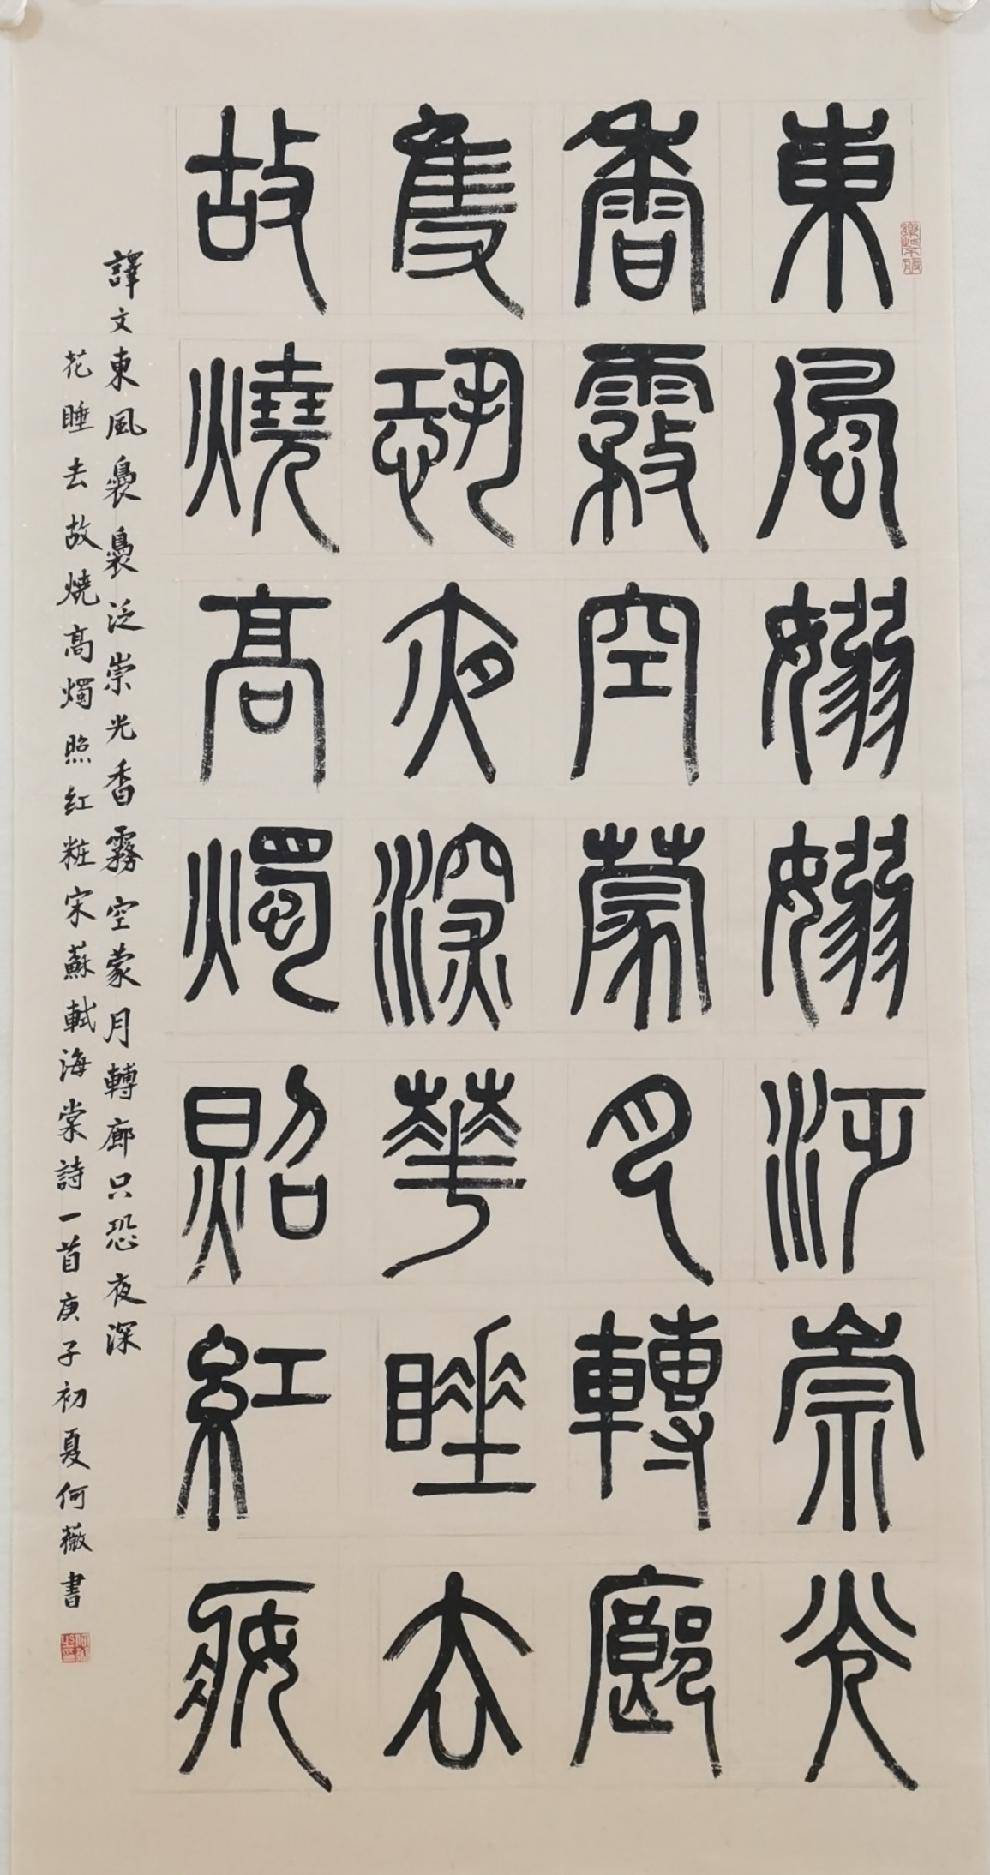 東風嫋嫋泛崇光
香霧空蒙月轉廊
隻恐夜深華睡去
故燒高燭照紅妝
譯文東風裊裊泛崇光香霧空蒙月轉廊只恐夜深
花睡去故燒高燭照红粧宋蘇軾海棠詩一首庚子初夏何薇書